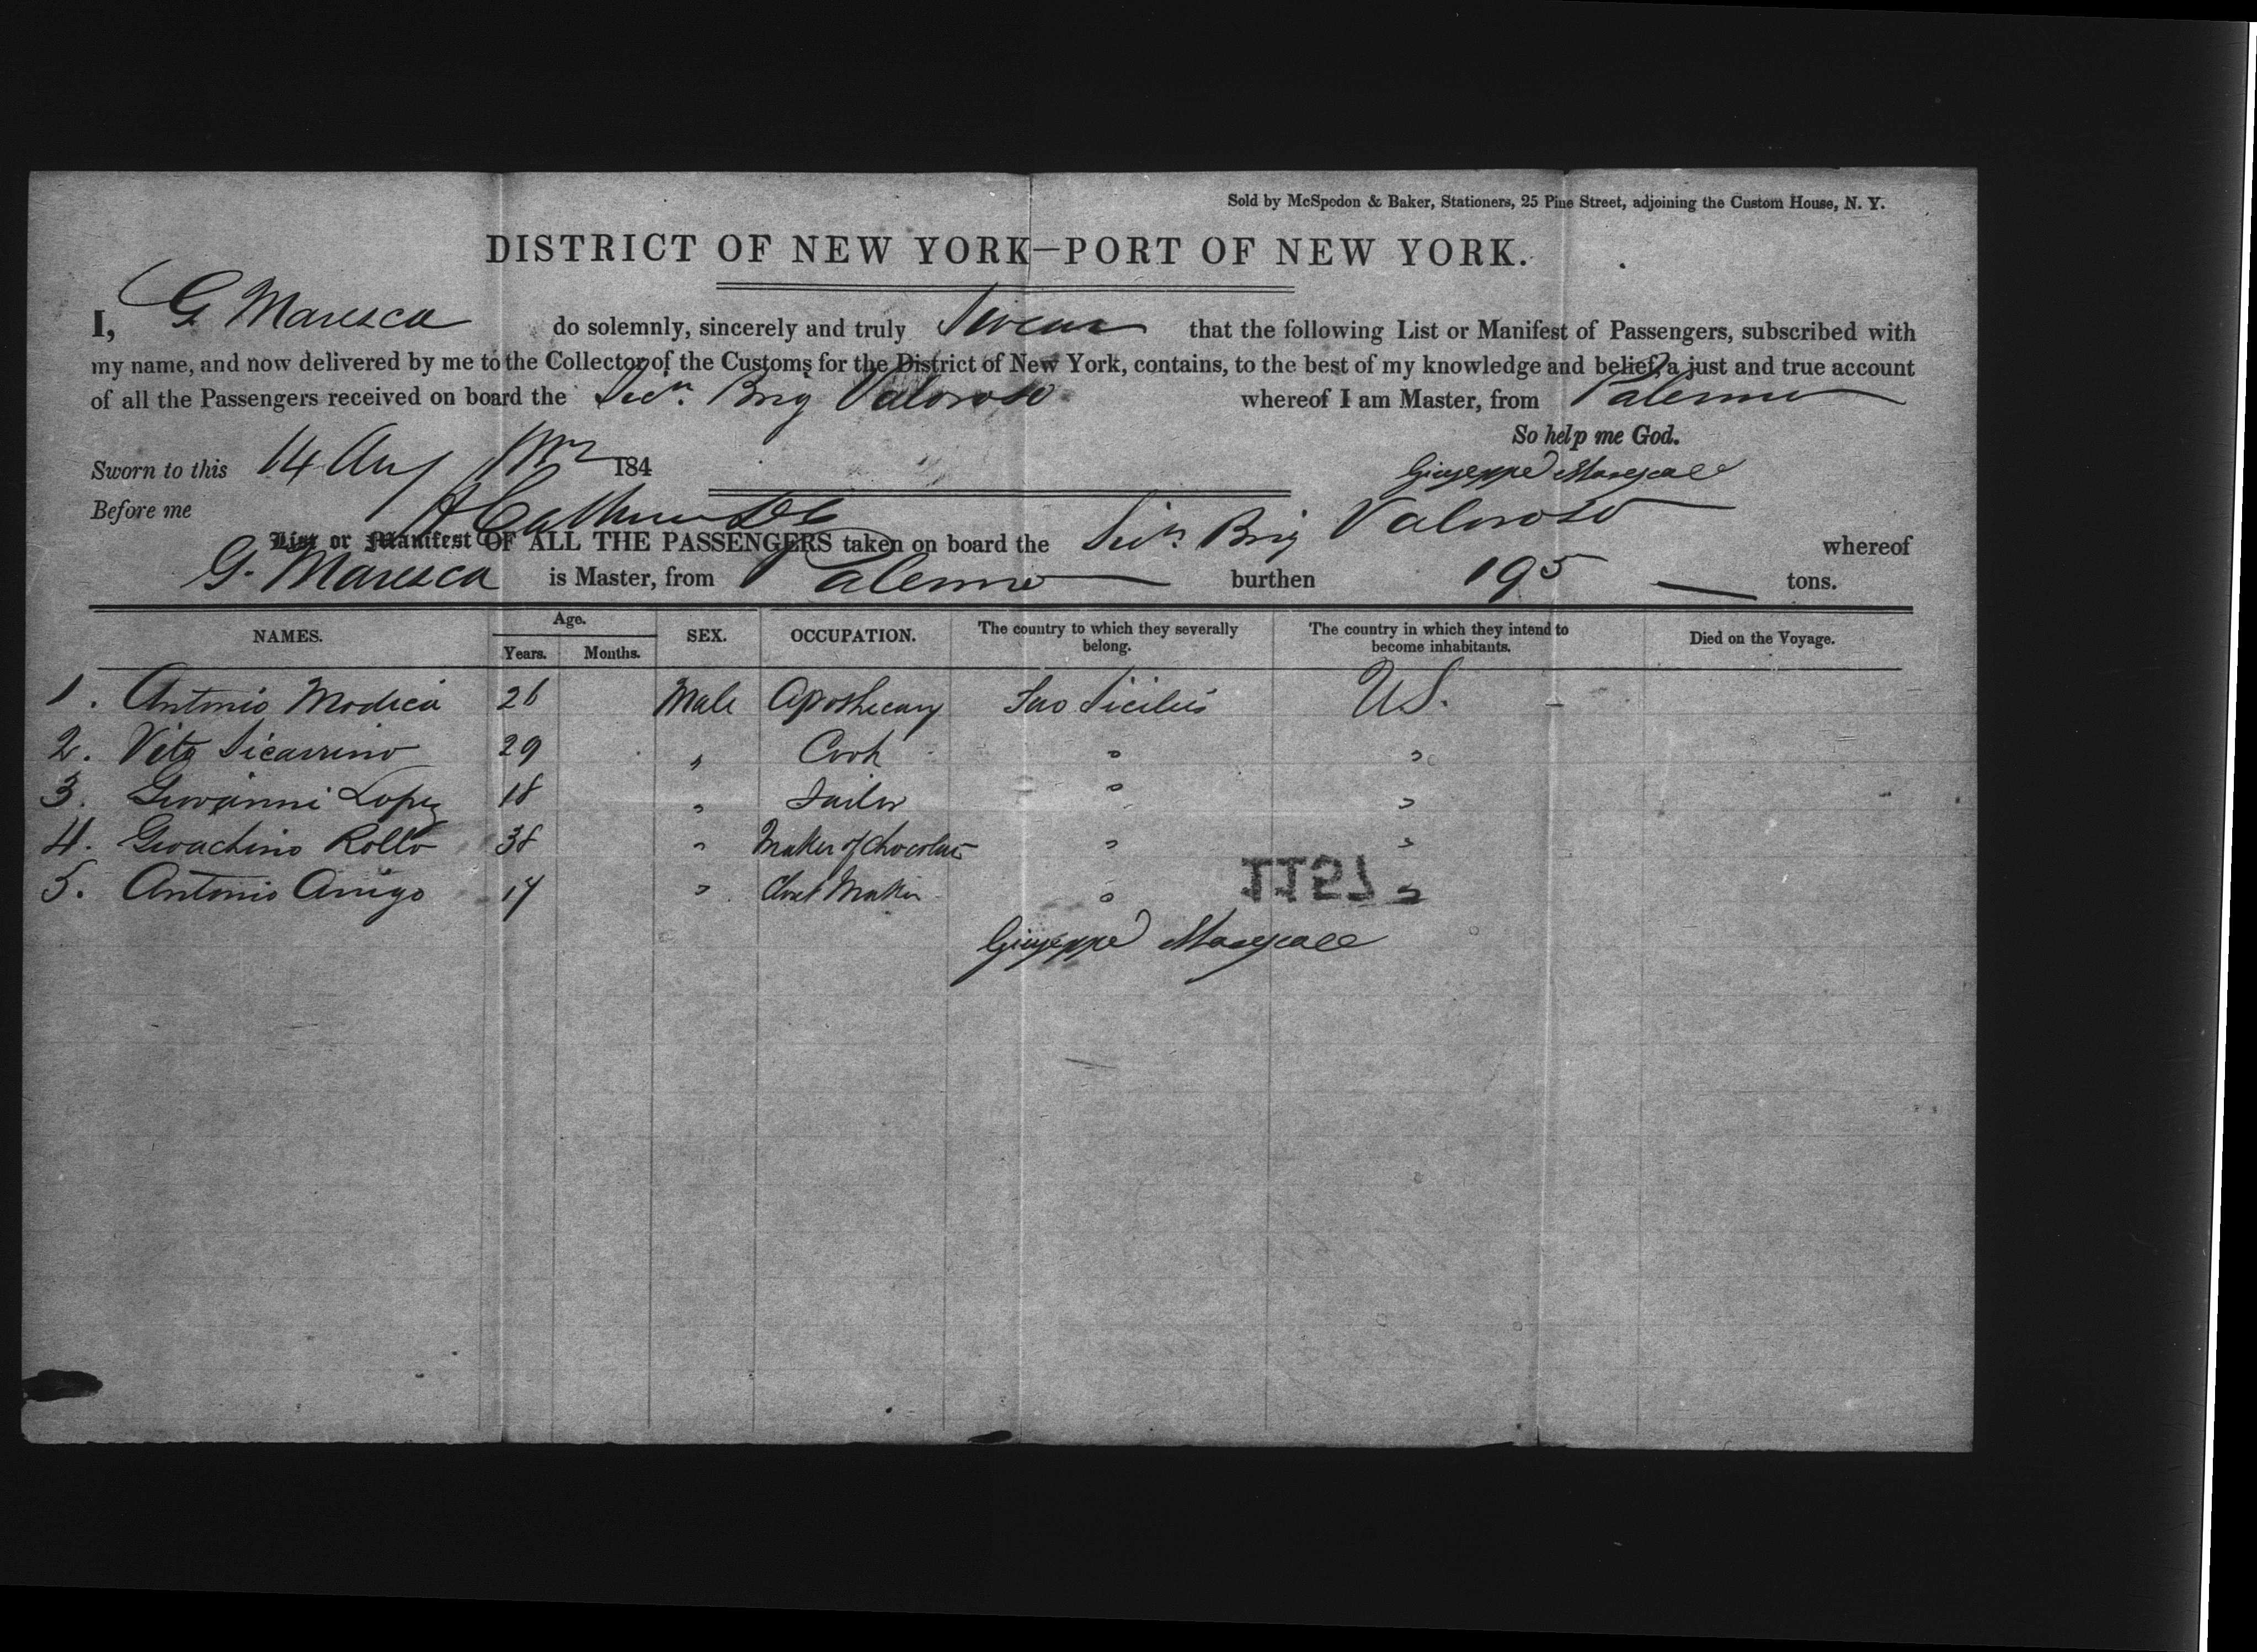 Sold by McSpedon & Baker, Stationers, 25 Pine Street, adjoining the Custom House, N. Y.
DISTRICT OF NEW YORK—PORT OF NEW YORK.
I, G Maresca do solemnly, sincerely and truly Swear that the following List or Manifest of Passengers, subscribed with
my name, and now delivered by me to the Collector of the Customs for the District of New York, contains, to the best of my knowledge and belief, a just and true account
of all the Passengers received on board the Sicn. Brig Valoroso whereof I am Master, from Palermo
So help me God.
Sworn to this 14 Aug 184
Giuseppe
Before me
List or Manifest OF ALL THE PASSENGERS taken on board the Sicn Brig Valoroso whereof
G. Maresca is Master, from Palermo burthen 195 tons.
NAMES. Age. Years. Months. SEX. OCCUPATION. The country to which they severally belong. The country in which they intend to become inhabitants. Died on the Voyage.
1. Antonio Modica 26 Male Apothecary Two Sicilies US.
2. Vito Sicarrino 29 " Cook " "
3. Giovanni Lopez 18 " Sailor " "
4. Gioachino Rollo 38 " Maker of Chocolate " "
5. Antonio Arrigo 17 " Maker " "
1157
Giuseppe